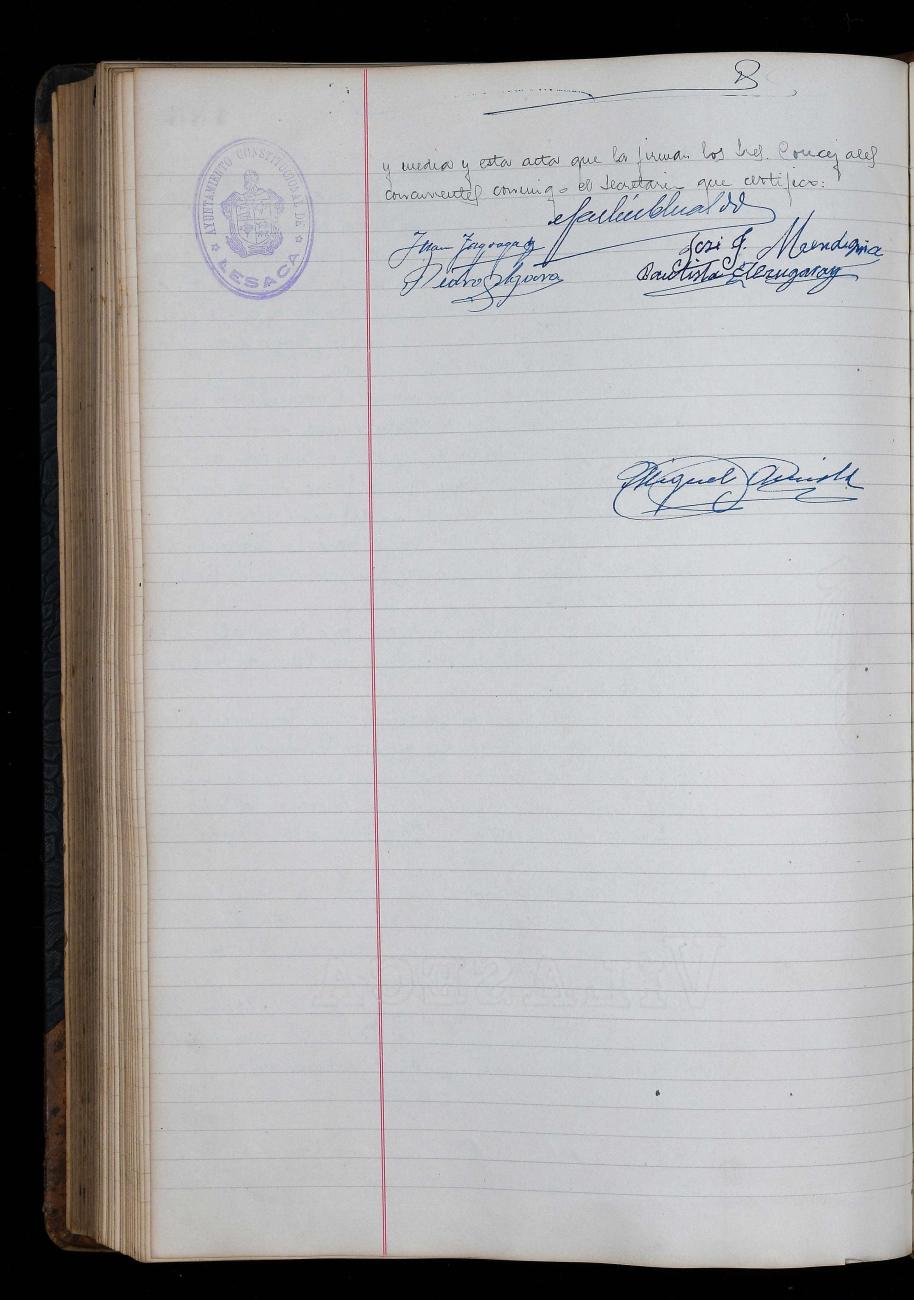 AYUNTAMIENTO CONSTITUCIONAL DE
LESACA
y media y esta acta que la firman los Sres. Concejales
concurrentes conmigo el Secretario que certifico:
Juan
José J. Mendiguia
Pedro
Bautista
Miguel
VILASECA